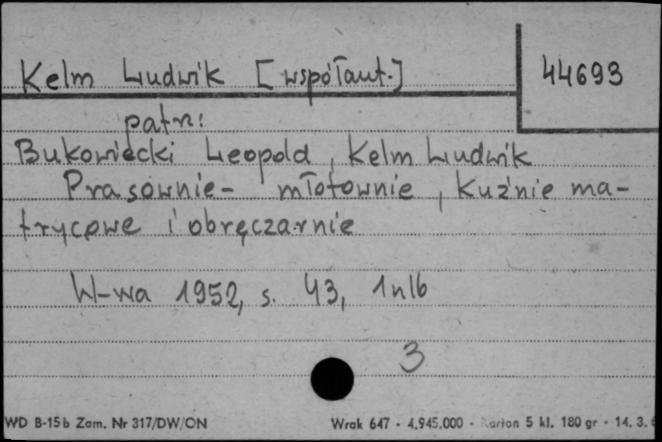 Kelm Ludwik [współaut.]
44693
patrz:
Bukowiecki Leopold, Kelm Ludwik
Prasownie- młotownie, Kuźnie ma-
trycowe i obręczarnie
W-wa 1952, s. 43, 1nlb
3
WD B-15b Zam. Nr 317/DW/ON
Wrak 647 - 4.945.000 - Karton 5 kl. 180 gr - 14. 3. 6